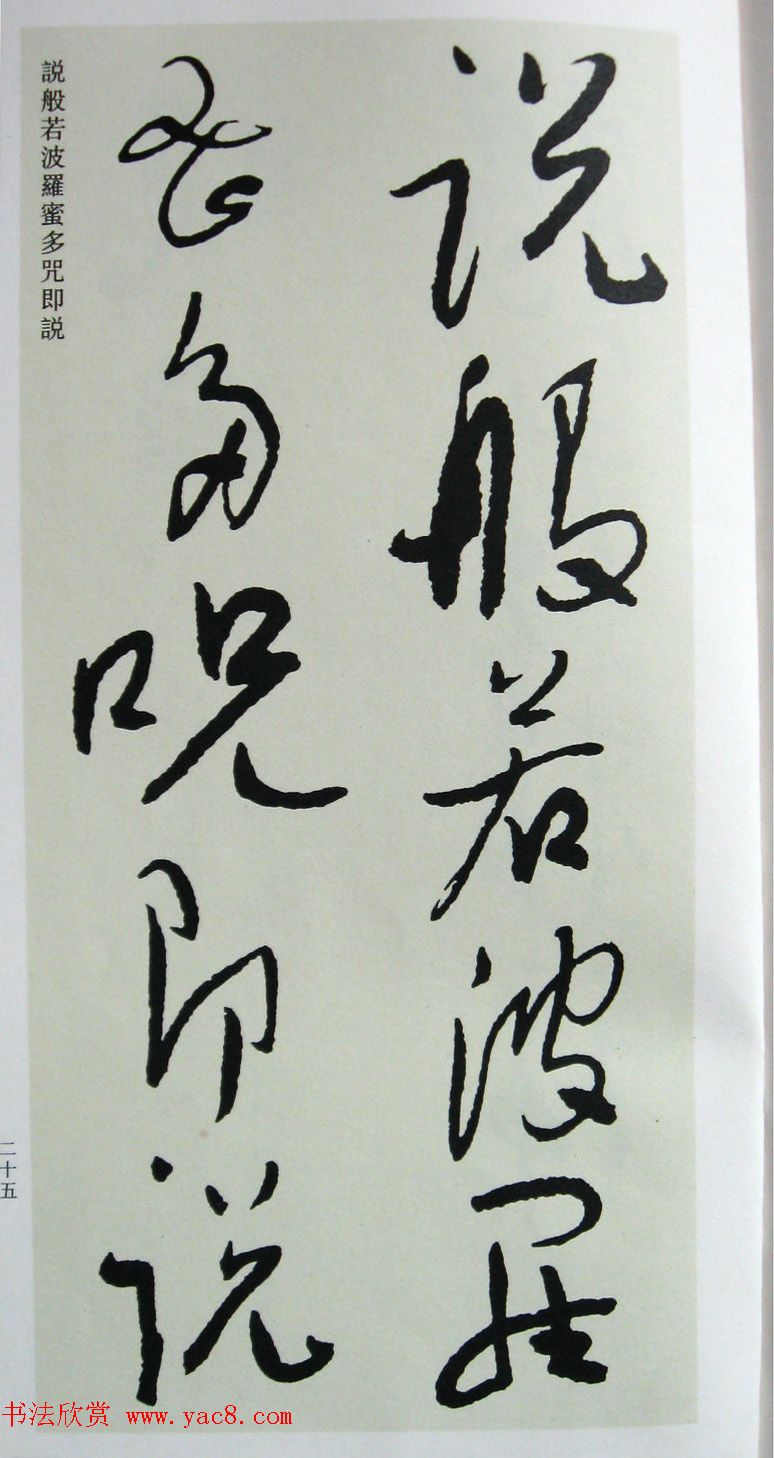 说般若波罗
蜜多咒即说
説般若波羅蜜多咒即説
二十五
书法欣赏 www.yac8.com